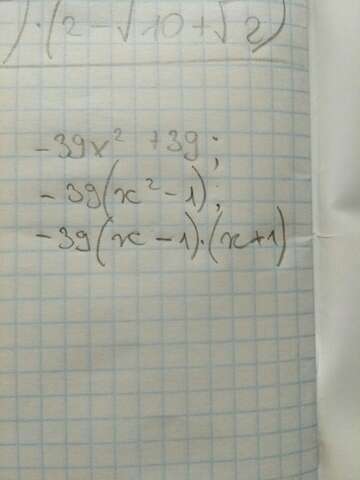 )·(2-√10+√2)
-39x² +39;
-39(x²-1);
-39(x-1)·(x+1)